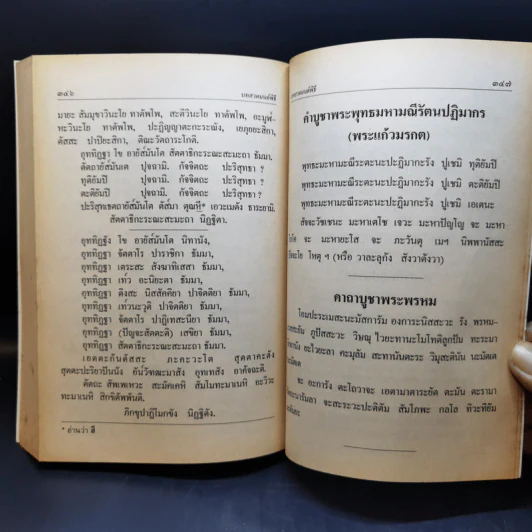 ๓๔๖ บทสวดมนต์พิธี
มายะ สัมมุขาวินะโย ทาตัพโพ, สะติวินะโย ทาตัพโพ, อะมูฬ-
หะวินะโย ทาตัพโพ, ปะฏิญญาตะกะระณัง, เยภุยยะสิกา,
ตัสสะ ปาปิยะสิกา, ติณะวัตถาระโกติ.
อุททิฏฐา โข อายัส์มันโต สัตตาธิกะระณะสะมะถา ธัมมา.
ตัตถายัส์มันเต ปุจฉามิ. กัจจิตถะ ปะริสุทธา ?
ทุติยัมปิ ปุจฉามิ. กัจจิตถะ ปะริสุทธา ?
ตะติยัมปิ ปุจฉามิ. กัจจิตถะ ปะริสุทธา ?
ปะริสุทเธตถายัส์มันโต ตัส์มา ตุณหี* เอวะเมตัง ธาระยามิ.
สัตตาธิกะระณะสะมะถา นิฏฐิตา.
อุททิฏฐัง โข อายัส์มันโต นิทานัง,
อุททิฏฐา จัตตาโร ปาราชิกา ธัมมา,
อุททิฏฐา เตระสะ สังฆาทิเสสา ธัมมา,
อุททิฏฐา เท๎ว อะนิยะตา ธัมมา,
อุททิฏฐา ติงสะ นิสสัคคิยา ปาจิตติยา ธัมมา,
อุททิฏฐา เท๎วนะวุติ ปาจิตติยา ธัมมา,
อุททิฏฐา จัตตาโร ปาฏิเทสะนียา ธัมมา,
อุททิฏฐา (ปัญจะสัตตะติ) เสขิยา ธัมมา,
อุททิฏฐา สัตตาธิกะระณะสะมะถา ธัมมา,
เอตตะกันตัสสะ ภะคะวะโต สุตตาคะตัง
สุตตะปะริยาปันนัง อัน๎วัทฒะมาสัง อุทเทสัง อาคัจฉะติ.
ตัตถะ สัพเพเหวะ สะมัคเคหิ สัมโมทะมาเนหิ อะวิวะ-
ทะมาเนหิ สิกขิตัพพันติ.
ภิกขุปาฏิโมกขัง นิฏฐิตัง.
* อ่านว่า ฮี
๓๔๗
คำบูชาพระพุทธมหามณีรัตนปฏิมากร
(พระแก้วมรกต)
พุทธะมะหามะณีระตะนะปะฏิมากะรัง ปูเชมิ ทุติยัมปิ
พุทธะมะหามะณีระตะนะปะฏิมากะรัง ปูเชมิ ตะติยัมปิ
พุทธะมะหามะณีระตะนะปะฏิมากะรัง ปูเชมิ เอเตนะ
สัจจะวัชเชนะ มะหาเตโช เจวะ มะหาปัญโญ จะ มะหา-
จะ มะหายะโส จะ ภะวันตุ เมฯ นิพพานัสสะ
โหตุ ฯ (หรือ วาละลุกัง สังวาตังวา)
คาถาบูชาพระพรหม
โอมปะระเมสะนะมัสการัม องการะนิสสะวะ รัง พรหม-
ภูปัสสะวะ วิษณุ ไวยะทานะโมโทติลูกปัม ทะระมา
ยะไวยะลา คะมุลัม สะทานันตะวะ วิมุสะตินัน นะมัตเต
จะ อะการัง ตะโถวาจะ เอตามาตาระยัต ตะมัน ตะรามา
จะสะระวะปะติตัม สัมโภพะ กลโล ทิวะทิยัม